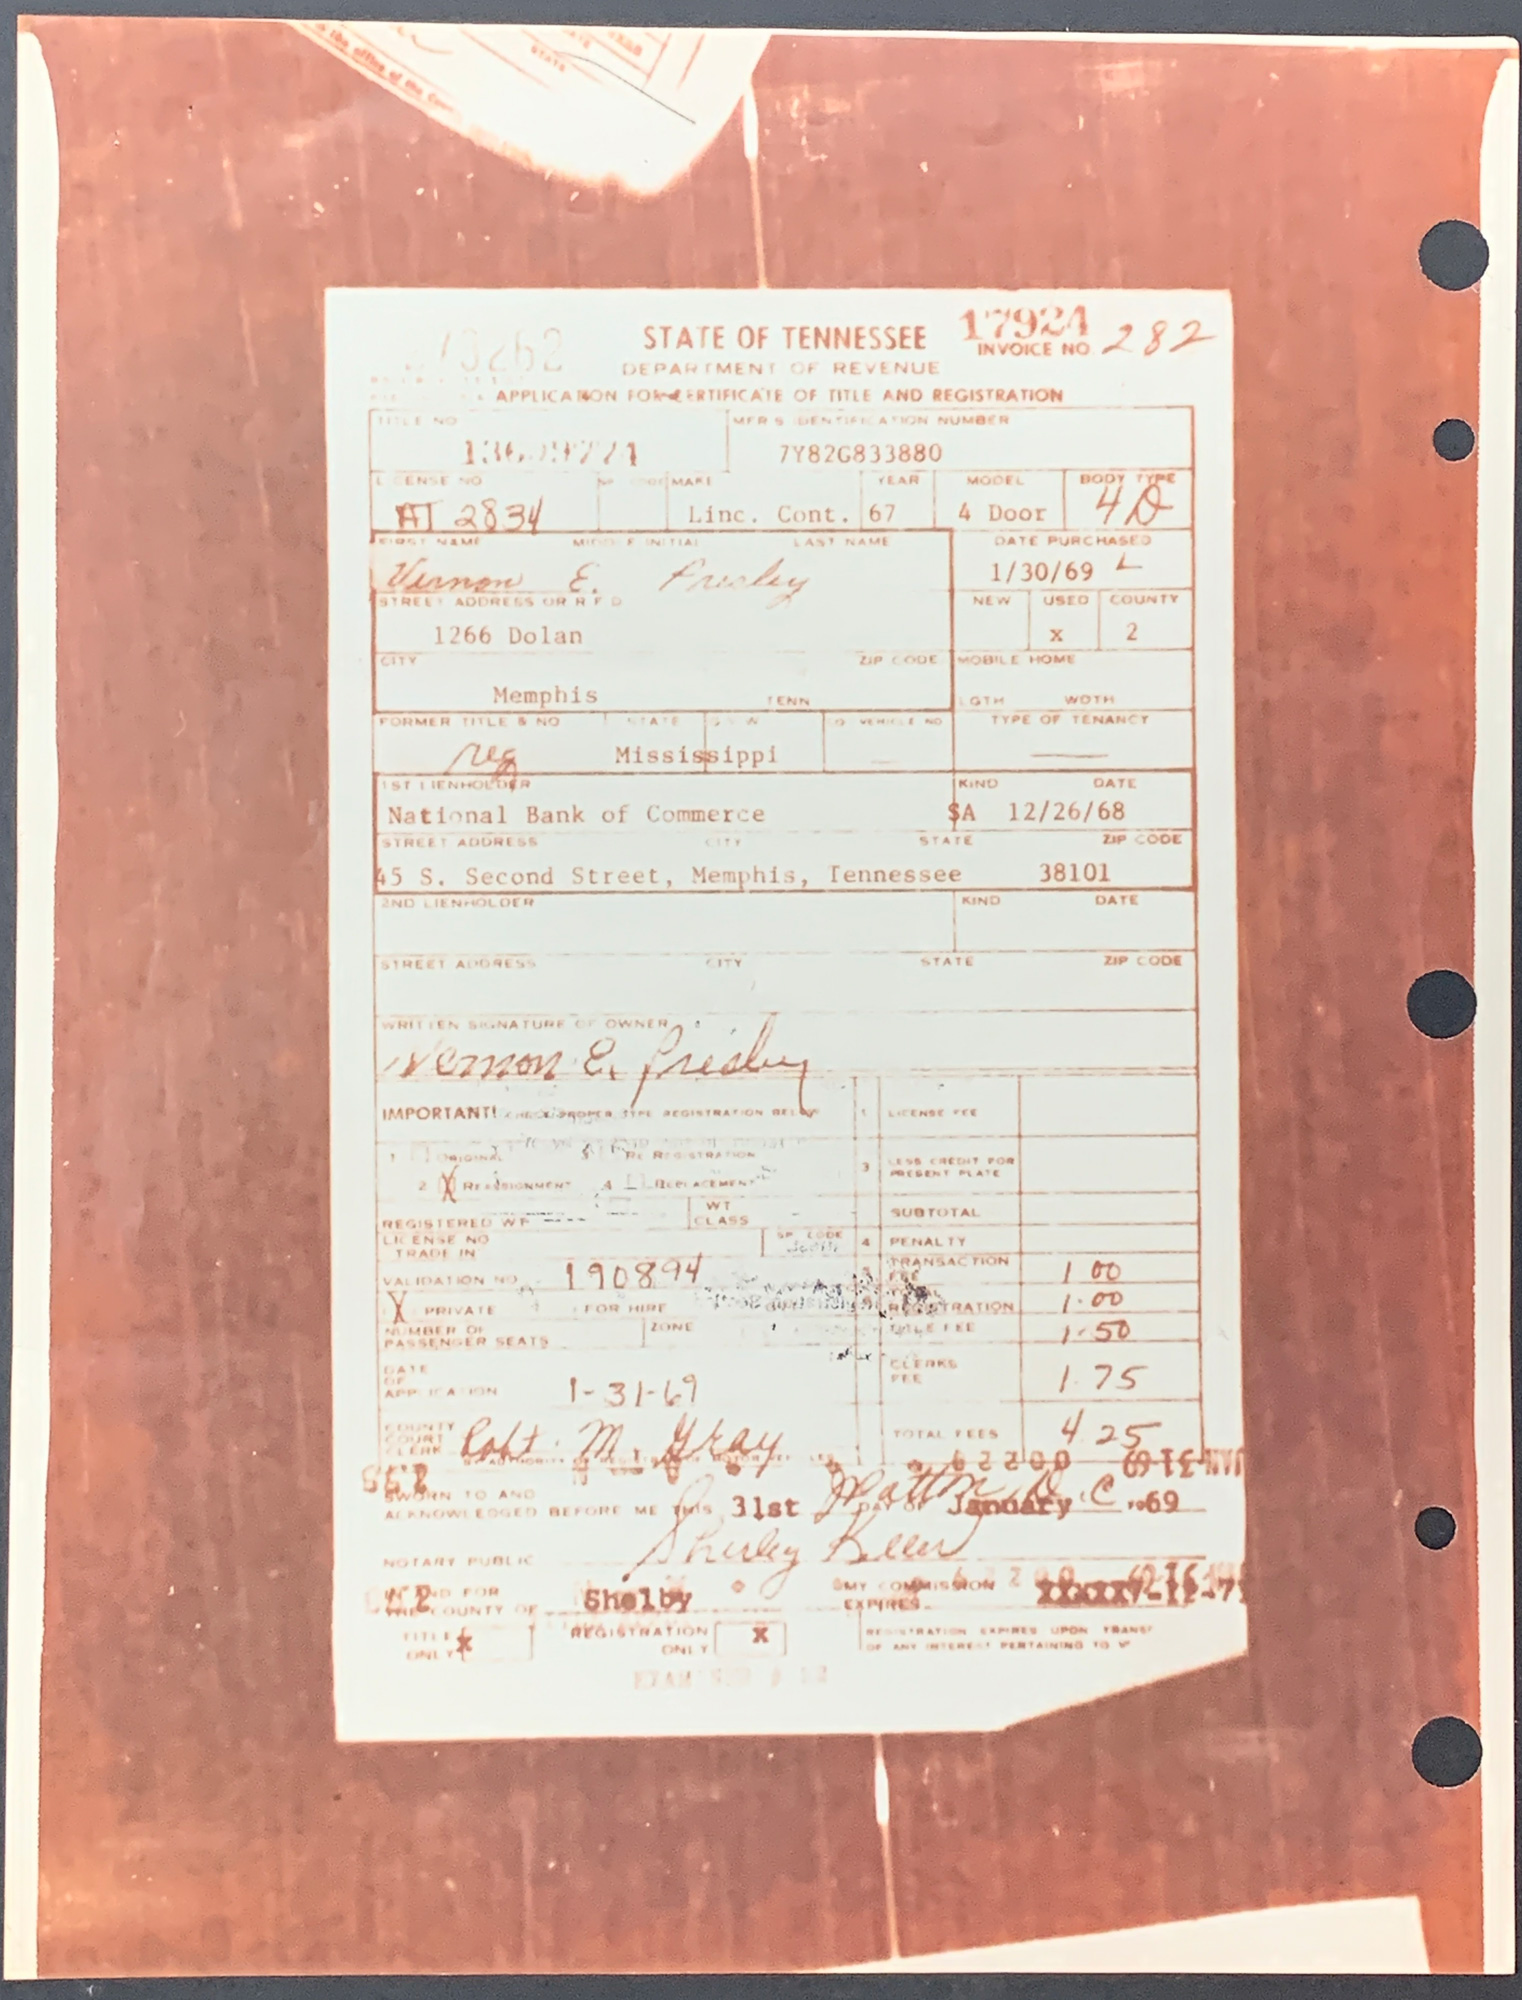 STATE
in the office of the
STATE OF TENNESSEE 17924
INVOICE NO. 282
DEPARTMENT OF REVENUE
APPLICATION FOR CERTIFICATE OF TITLE AND REGISTRATION
TITLE NO MFR'S IDENTIFICATION NUMBER
7Y82G833880
LICENSE NO MAKE YEAR MODEL BODY TYPE
AT 2834 Linc. Cont. 67 4 Door 4D
FIRST NAME MIDDLE INITIAL LAST NAME DATE PURCHASED
Vernon E. Presley 1/30/69
STREET ADDRESS OR R F D NEW USED COUNTY
1266 Dolan x 2
CITY ZIP CODE MOBILE HOME
Memphis TENN LGTH WDTH
FORMER TITLE & NO STATE G V W CO VEHICLE NO TYPE OF TENANCY
reg Mississippi
1ST LIENHOLDER KIND DATE
National Bank of Commerce SA 12/26/68
STREET ADDRESS CITY STATE ZIP CODE
45 S. Second Street, Memphis, Tennessee 38101
2ND LIENHOLDER KIND DATE
STREET ADDRESS CITY STATE ZIP CODE
WRITTEN SIGNATURE OF OWNER
Vernon E. Presley
IMPORTANT! CHECK PROPER TYPE REGISTRATION BELOW 1 LICENSE FEE
1 ORIGINAL 3 RE REGISTRATION 3 LESS CREDIT FOR PRESENT PLATE
2 X REASSIGNMENT 4 REPLACEMENT
REGISTERED WT WT CLASS SUBTOTAL
LICENSE NO TRADE IN SP CODE 4 PENALTY
VALIDATION NO 190894 TRANSACTION FEE 1 00
X PRIVATE FOR HIRE REGISTRATION 1.00
NUMBER OF PASSENGER SEATS ZONE TITLE FEE 1.50
DATE OF APPLICATION 1-31-69 CLERKS FEE 1.75
COUNTY COURT CLERK Robt. M. Gray TOTAL FEES 4.25
62200 JAN-31-69
SWORN TO AND
ACKNOWLEDGED BEFORE ME THIS 31st DAY OF January 1969
Shirley Keller
NOTARY PUBLIC
IN AND FOR THE COUNTY OF Shelby MY COMMISSION EXPIRES
TITLE ONLY x REGISTRATION ONLY X REGISTRATION EXPIRES UPON
OF ANY INTEREST PERTAINING TO